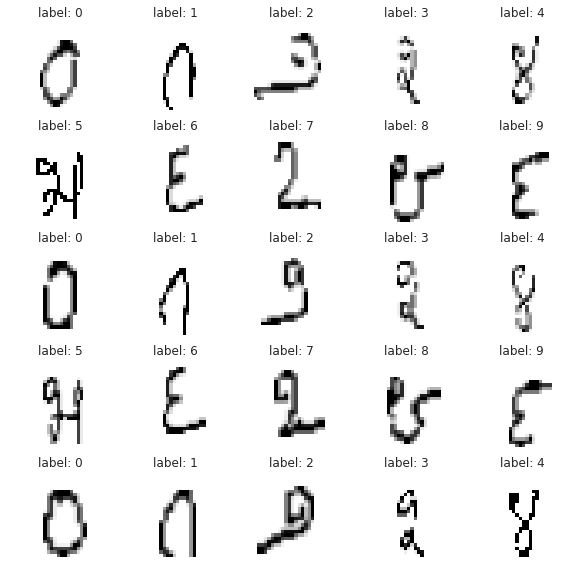 label: 0 label: 1 label: 2 label: 3 label: 4
೦ ೧ ೨ ೩ ೪
label: 5 label: 6 label: 7 label: 8 label: 9
೫ ೬ ೭ ೮ ೯
label: 0 label: 1 label: 2 label: 3 label: 4
೦ ೧ ೨ ೩ ೪
label: 5 label: 6 label: 7 label: 8 label: 9
೫ ೬ ೭ ೮ ೯
label: 0 label: 1 label: 2 label: 3 label: 4
೦ ೧ ೨ ೩ ೪